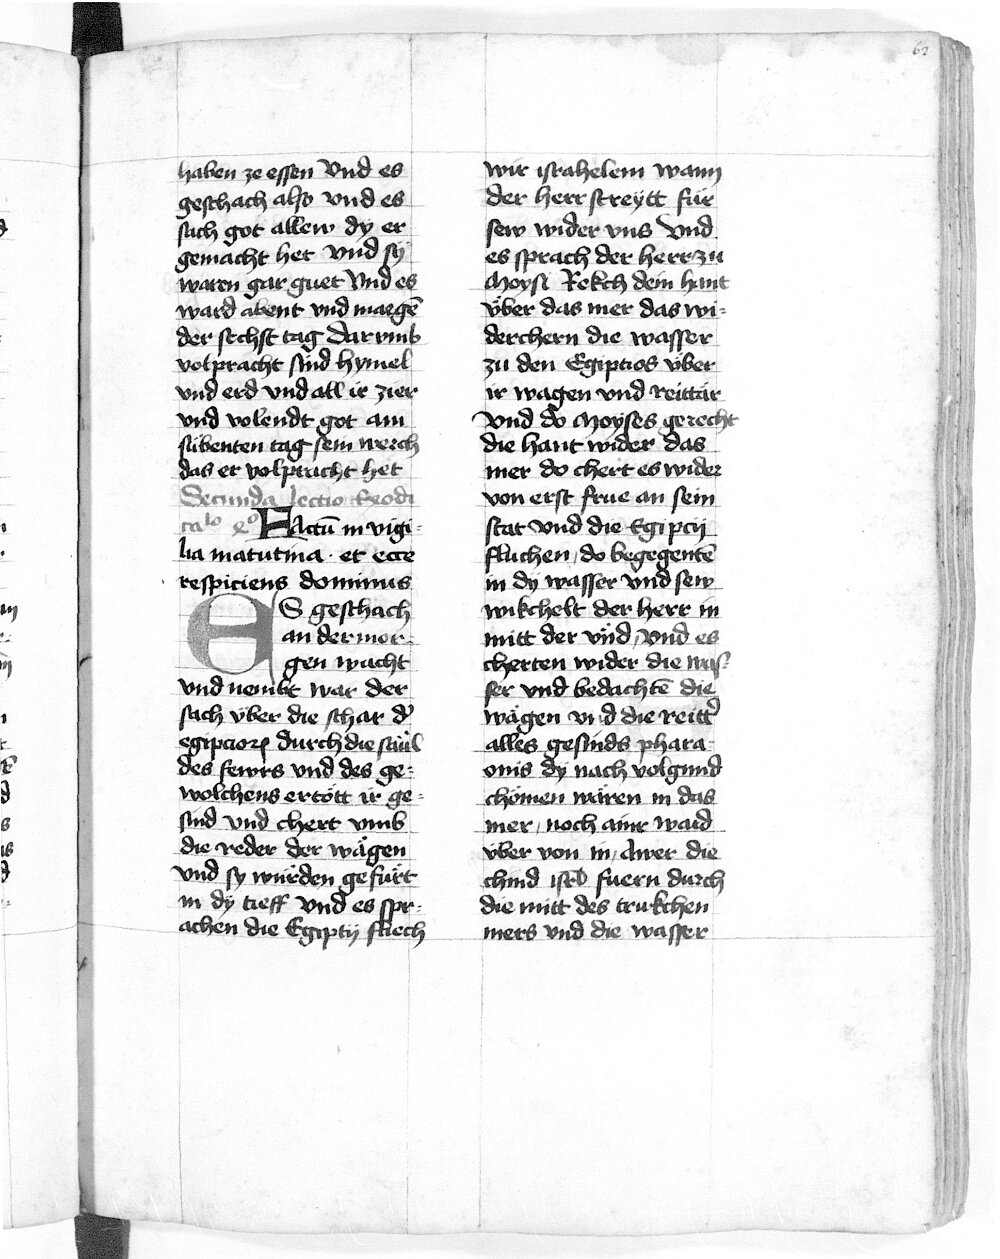 62
haben ze essen Vnd es
geschach also vnd es
sach got allew dy er
gemacht het Vnd sy
waren gar guet Vnd es
ward abent vnd margē
der sechst tag Darvmb
volpracht sind hymel
vnd erd vnd all ir zier
vnd volendt got am
sibenten tag sein werch
das er volpracht het
Secunda lectio Exodi
Factū in vigi-
lia matutina · et ecce
respiciens dominus
ES geschach
an der mor-
gen wacht
vnd nembt war der
sach über die schar d
egipciorꝝ durch die säul
des fewrs vnd des ge-
wolchens ertött ir ge-
sind vnd chert vmb
die reder der wägen
vnd sy würden gefürt
in dy tieff vnd es spr-
achen die Egiptij fliech
wir israhelem wann
der herr streytt für
sew wider vns Vnd
es sprach der herr zu
Moysi Rekch dein hant
über das mer das wi-
derchern die wasser
zu den Egiptios über
ir wägen vnd reittär
Vnd do Moyses gerecht
die hant wider das
mer do chert es wider
von erst frue an sein
stat vnd die Egiptij
fluchen / do begegentē
in dy wasser vnd sew
wikchelt der herr in
mitt der vnd / vnd es
cherten wider die was-
ser vnd bedachtē die
wägen vnd die reitt
alles gesinds phara-
onis dy nach volgund
chömen wären in das
mer / noch ainr ward
über von in / Awer die
chind isrl fuern durch
die mitt des trukchen
mers vnd die wasser